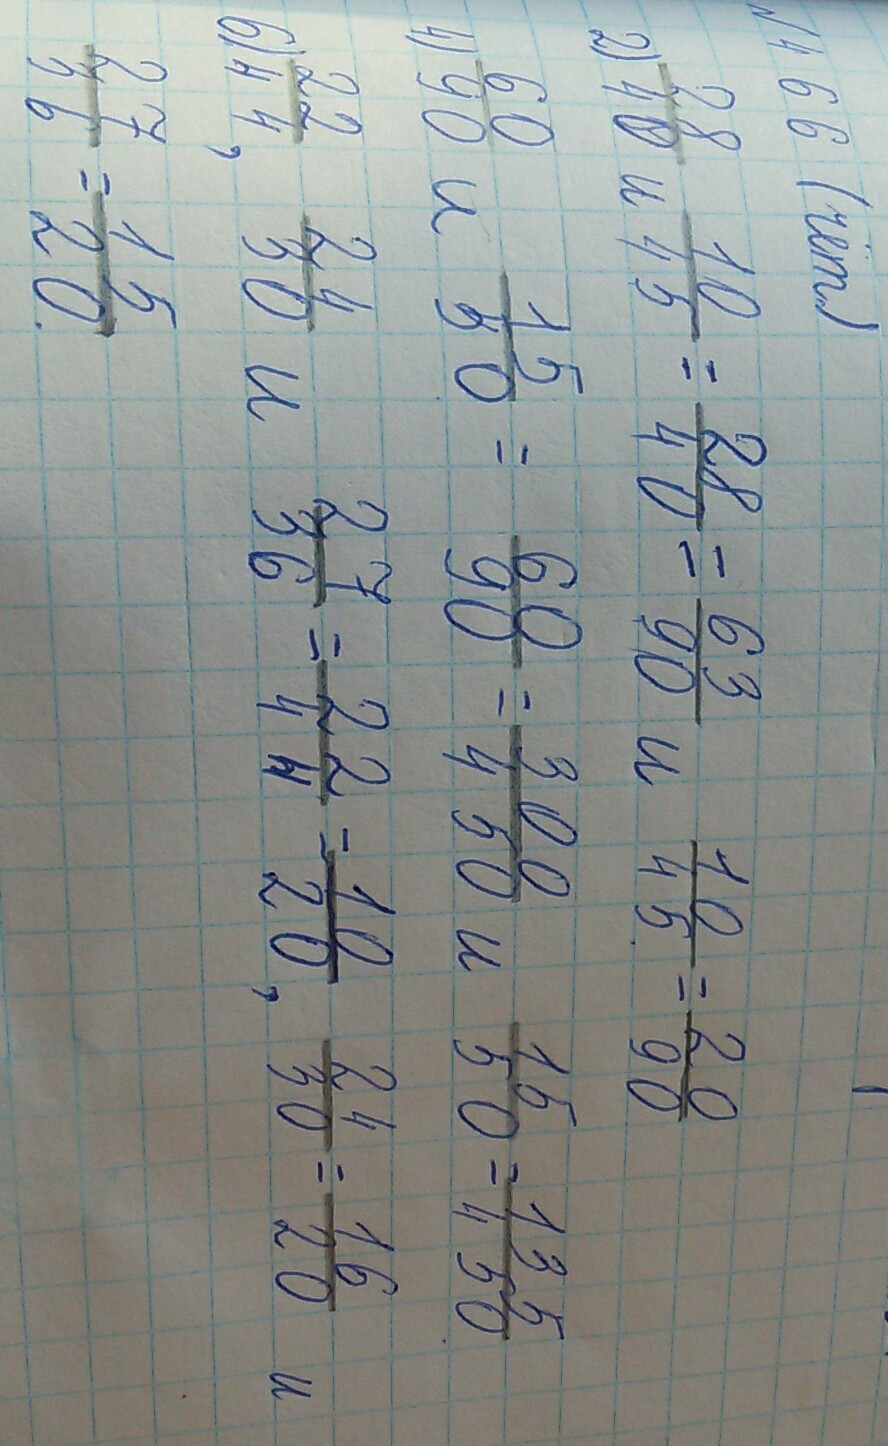 №466 (чёт.)
2) 28/40 и 10/45 = 28/40 = 63/90 и 10/45 = 20/90
4) 60/90 и 15/50 = 60/90 = 300/450 и 15/50 = 135/450
6) 22/44, 24/30 и 27/36 = 22/44 = 10/20, 24/30 = 16/20 и
27/36 = 15/20.